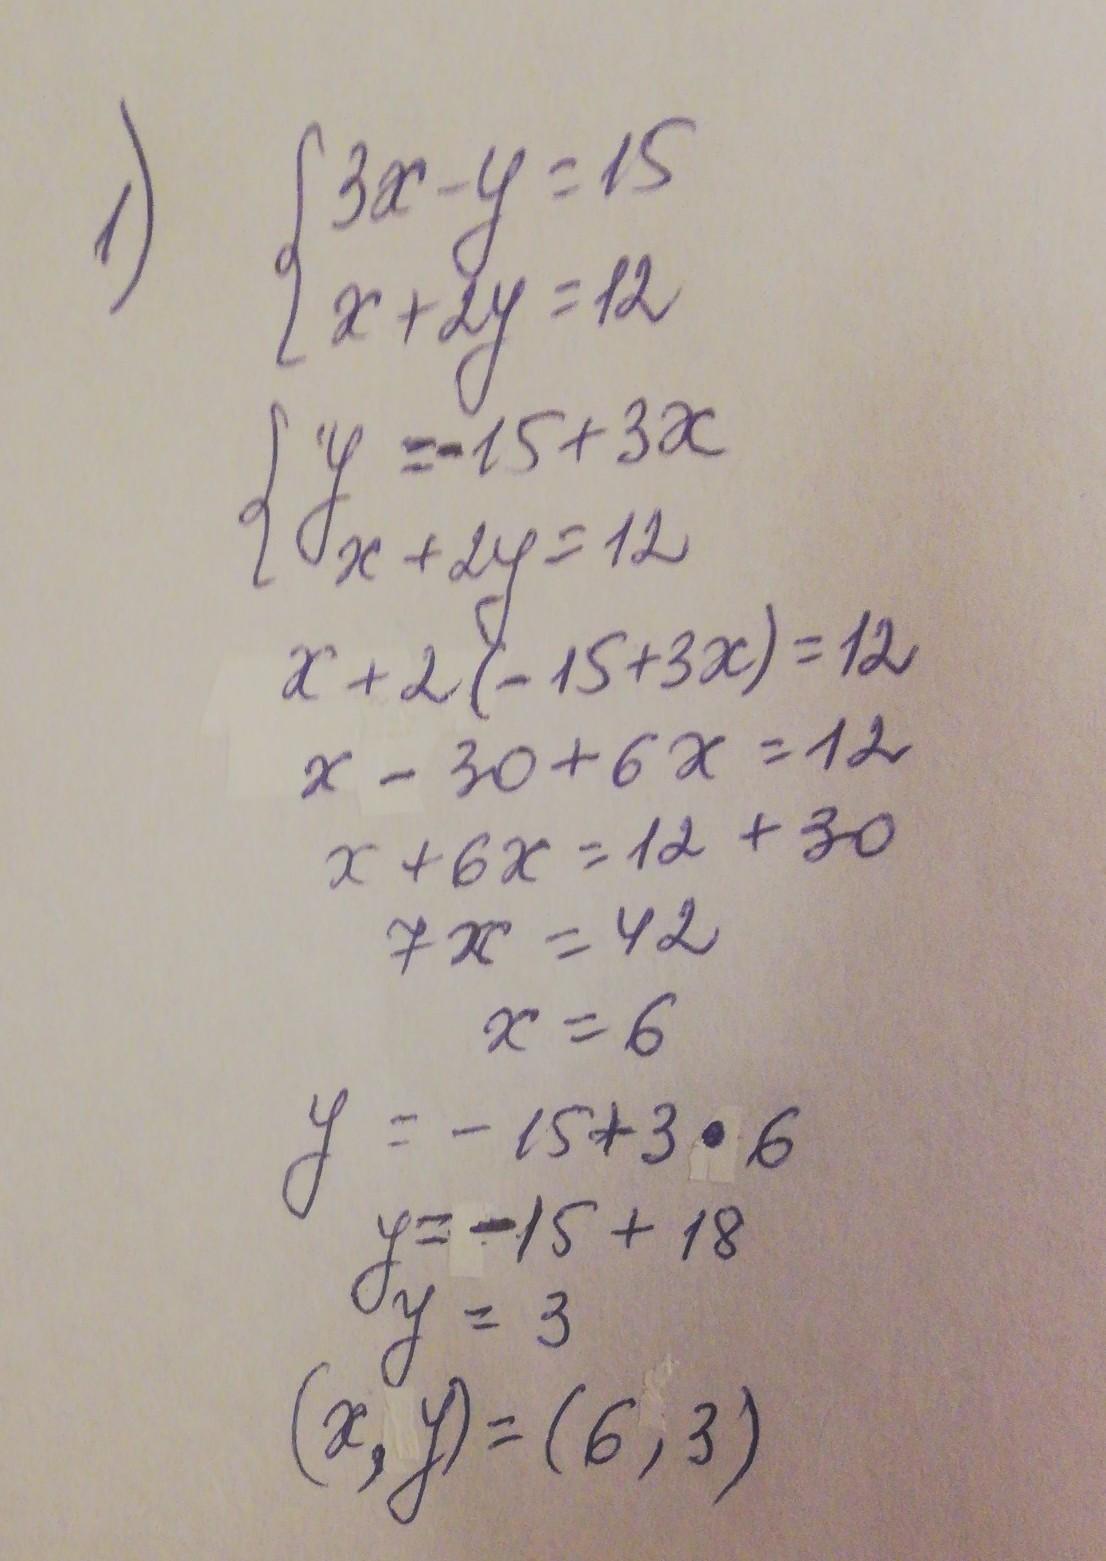 1)
3x-y=15
x+2y=12
y=-15+3x
x+2y=12
x+2(-15+3x)=12
x-30+6x=12
x+6x=12+30
7x=42
x=6
y=-15+3•6
y=-15+18
y=3
(x,y)=(6,3)